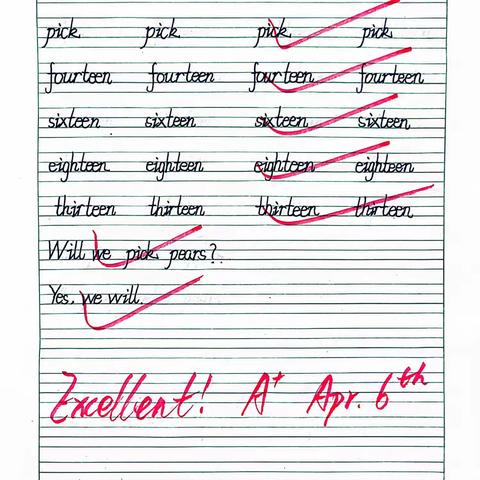 pick pick pick pick
fourteen fourteen fourteen fourteen
sixteen sixteen sixteen sixteen
eighteen eighteen eighteen eighteen
thirteen thirteen thirteen thirteen
Will we pick pears?
Yes, we will.
Excellent! A+ Apr. 6th